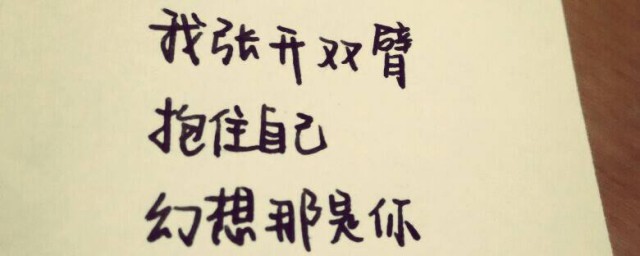 我张开双臂
抱住自己
幻想那是你